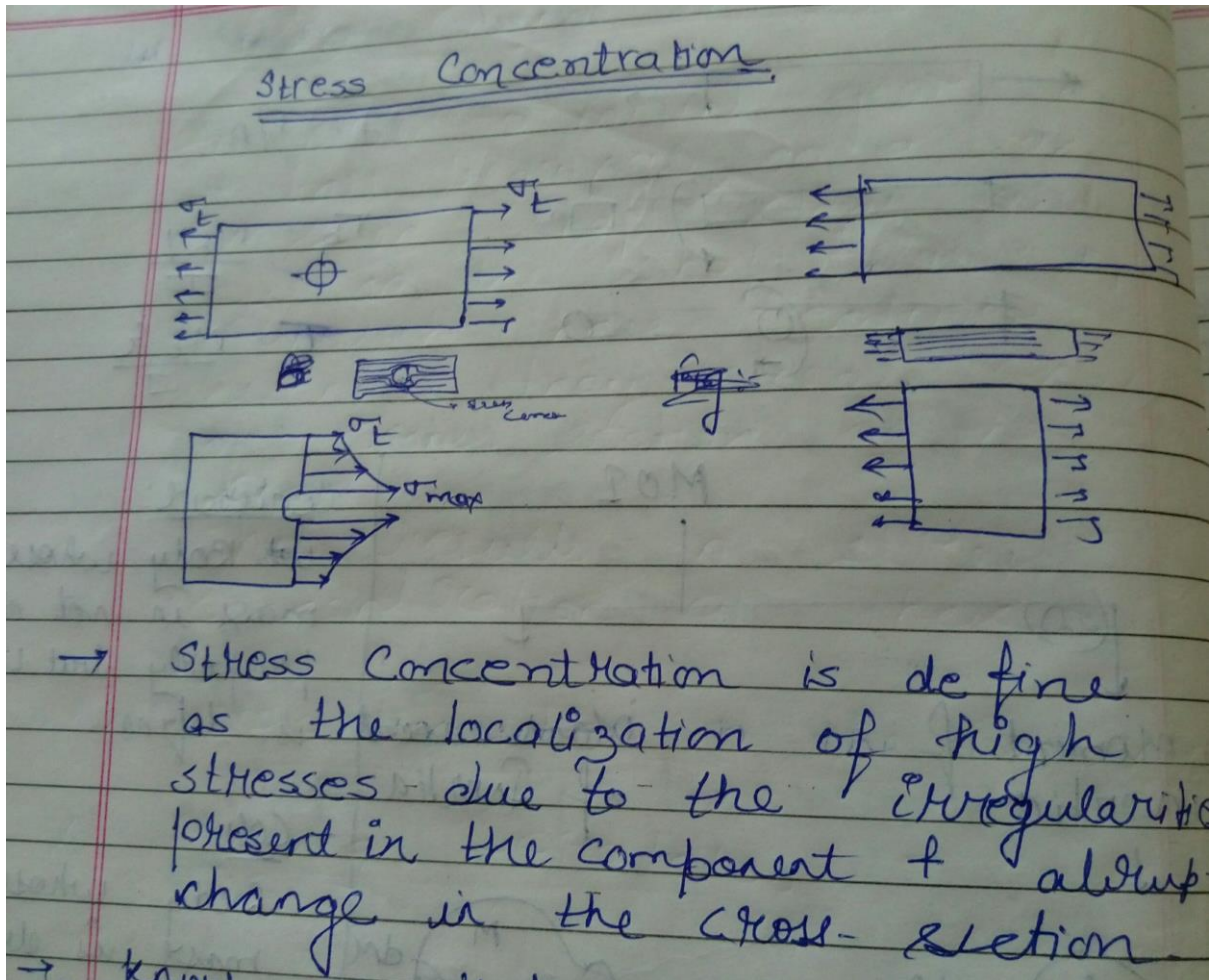 Stress Concentration
σt
σt
σt
σmax
→ Stress Concentration is define
as the localization of high
stresses due to the irregularitie
present in the component + abrup
change in the cross- section
→